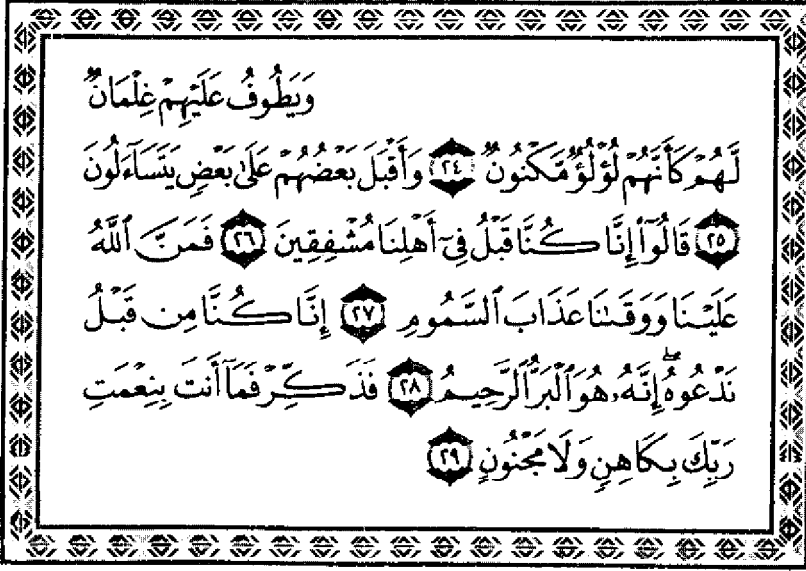 وَيَطُوفُ عَلَيْهِمْ غِلْمَانٌ
لَّهُمْ كَأَنَّهُمْ لُؤْلُؤٌ مَّكْنُونٌ ٢٤ وَأَقْبَلَ بَعْضُهُمْ عَلَىٰ بَعْضٍ يَتَسَآءَلُونَ
٢٥ قَالُوٓا۟ إِنَّا كُنَّا قَبْلُ فِىٓ أَهْلِنَا مُشْفِقِينَ ٢٦ فَمَنَّ ٱللَّهُ
عَلَيْنَا وَوَقَىٰنَا عَذَابَ ٱلسَّمُومِ ٢٧ إِنَّا كُنَّا مِن قَبْلُ
نَدْعُوهُ ۖ إِنَّهُۥ هُوَ ٱلْبَرُّ ٱلرَّحِيمُ ٢٨ فَذَكِّرْ فَمَآ أَنتَ بِنِعْمَتِ
رَبِّكَ بِكَاهِنٍ وَلَا مَجْنُونٍ ٢٩